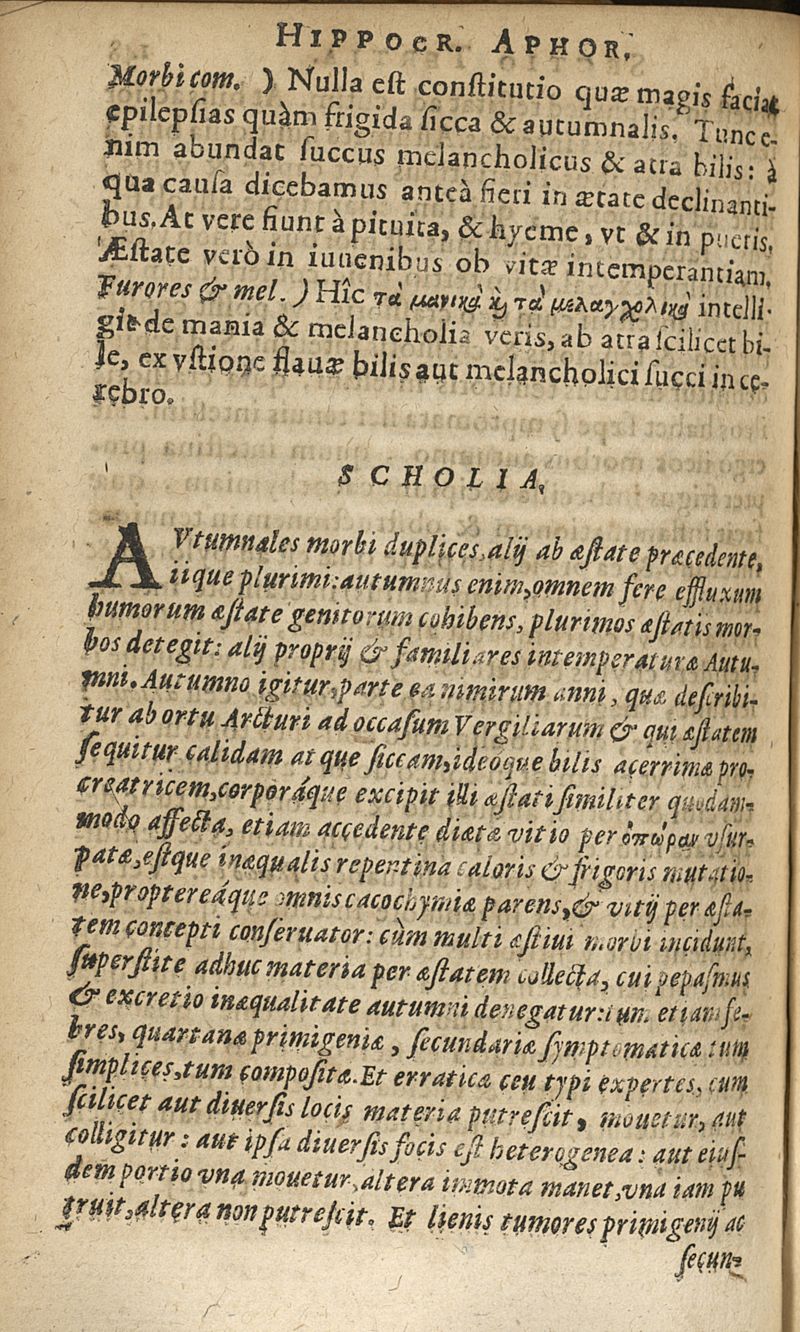 HIPPOCR. APHOR.
Morbi com. ) Nulla eſt conſtitutio quæ magis faciat
epilepſias quàm frigida ſicca & autumnalis. Tunc e-
nim abundat ſuccus melancholicus & atra bilis: à
qua cauſa dicebamus anteà fieri in ætate declinanti-
bus. At vere fiunt à pituita, & hyeme, vt & in pueris.
Æſtate verò in iuuenibus ob vitæ intemperantiam.
Furores & mel. ) Hîc τὰ μανικὰ ϗ τὰ μελαγχολικὰ intelli-
git de mania & melancholia veris, ab atra ſcilicet bi-
le, ex vſtione flauæ bilis aut melancholici ſucci in ce-
rebro.
SCHOLIA.
AVtumnales morbi duplices, alij ab æſtate præcedente,
iique plurimi: autumnus enim, omnem fere effluxum
humorum æſtate genitorum cohibens, plurimos æſtatis mor-
bos detegit: alij proprij & familiares intemperaturæ Autu-
mni. Autumno igitur, parte ea nimirum anni, quæ deſcribi-
tur ab ortu Arcturi ad occaſum Vergiliarum & qui æſtatem
ſequitur calidam at que ſiccam, ideoque bilis acerrimæ pro-
creatricem, corporáque excipit illi æſtati ſimiliter quodam-
modo affecta, etiam accedente diætæ vitio per ὀπώραν vſur-
patæ, eſtque inæqualis repentina caloris & frigoris mutatio-
ne, proptereáque omnis cacochymiæ parens, & vitij per æſta-
tem concepti conſeruator: cùm multi æſtiui morbi incidunt,
ſuperſtite adhuc materia per æſtatem collecta, cui pepaſmus
& excretio inæqualitate autumni denegatur: tum etiam fe-
bres, quartanæ primigeniæ, ſecundariæ ſymptomaticæ tum
ſimplices, tum compoſitæ. Et erraticæ ceu typi expertes, cum
ſcilicet aut diuerſis locis materia putreſcit, mouetur, aut
colligitur: aut ipſa diuerſis focis eſt heterogenea: aut eiuſ-
dem portio vna mouetur, altera immota manet, vna iam pu
truit, altera non putreſcit. Et lienis tumores primigenij ac
ſecun-